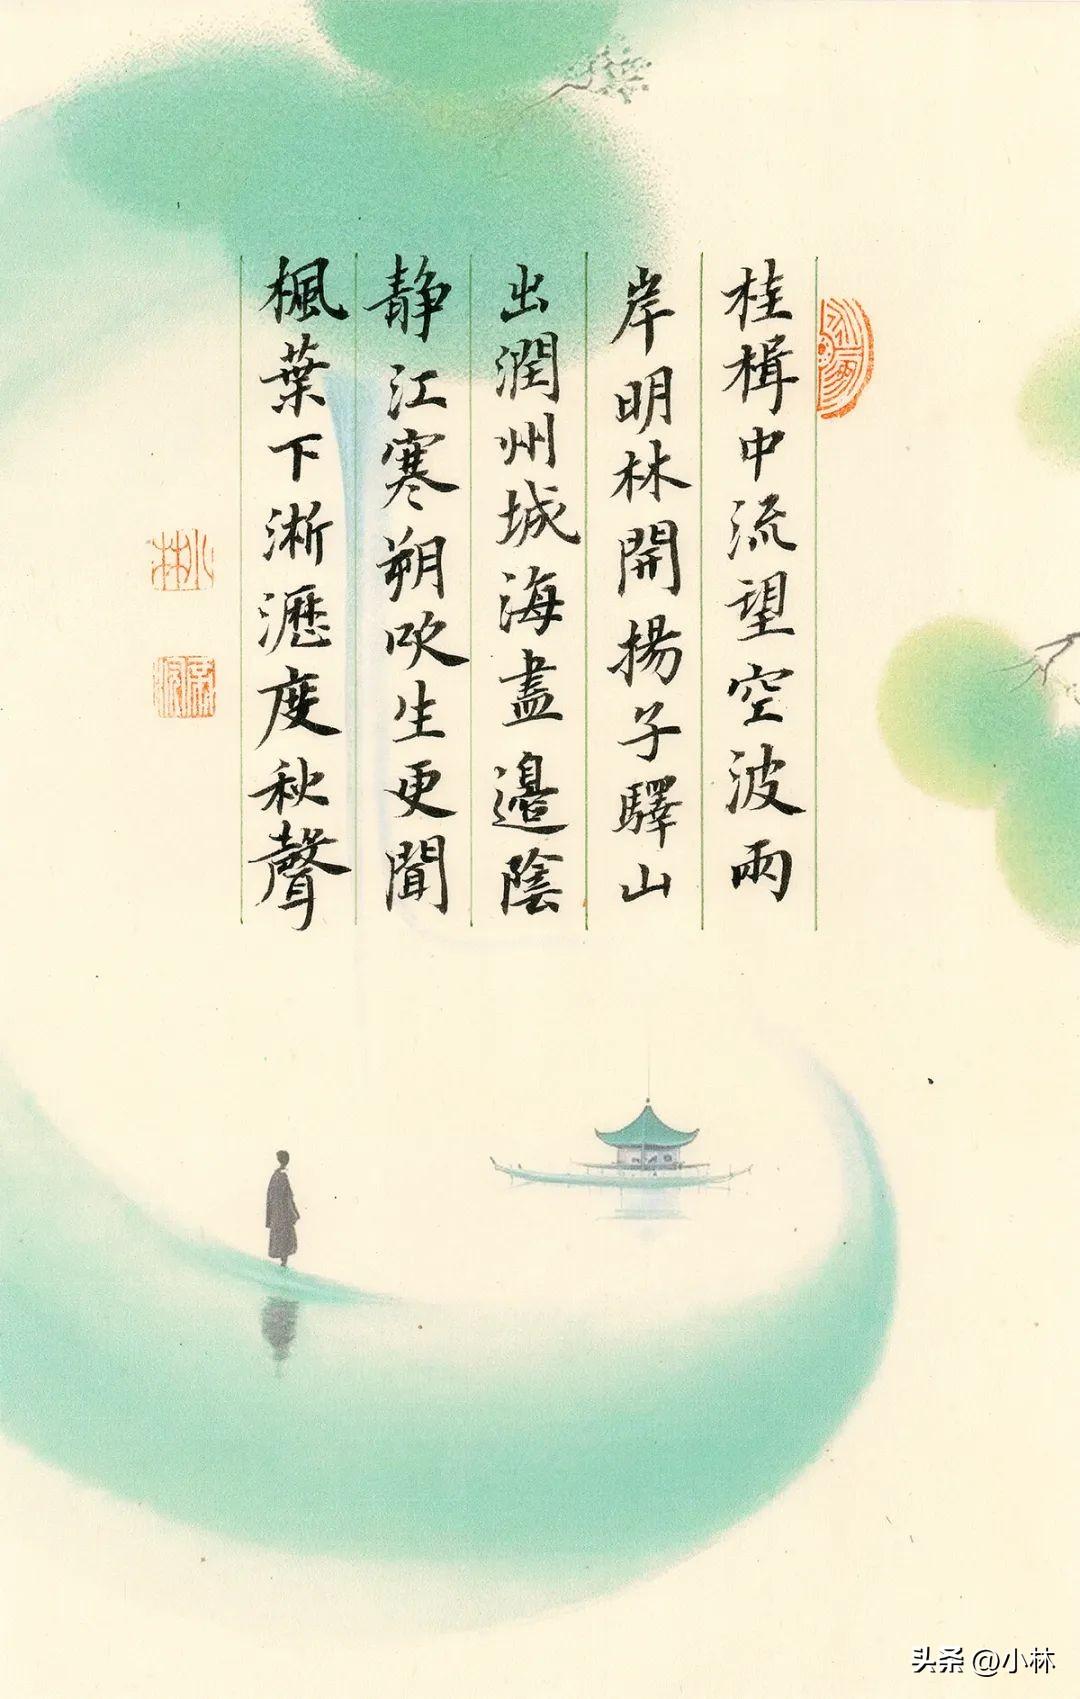 桂楫中流望空波兩
岸明林開揚子驛山
出潤州城海盡邊陰
靜江寒朔吹生更聞
楓葉下淅瀝度秋聲
小林
头条 @小林